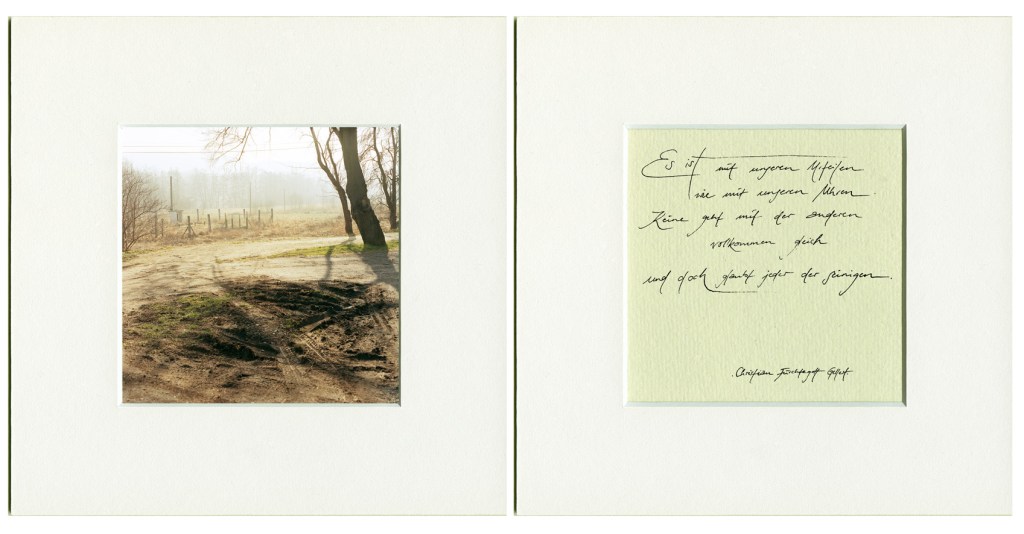 Es ist mit unseren Urteilen
wie mit unseren Uhren.
Keine geht mit der anderen
vollkommen gleich
und doch glaubt jeder der seinigen.
Christian Fürchtegott Gellert